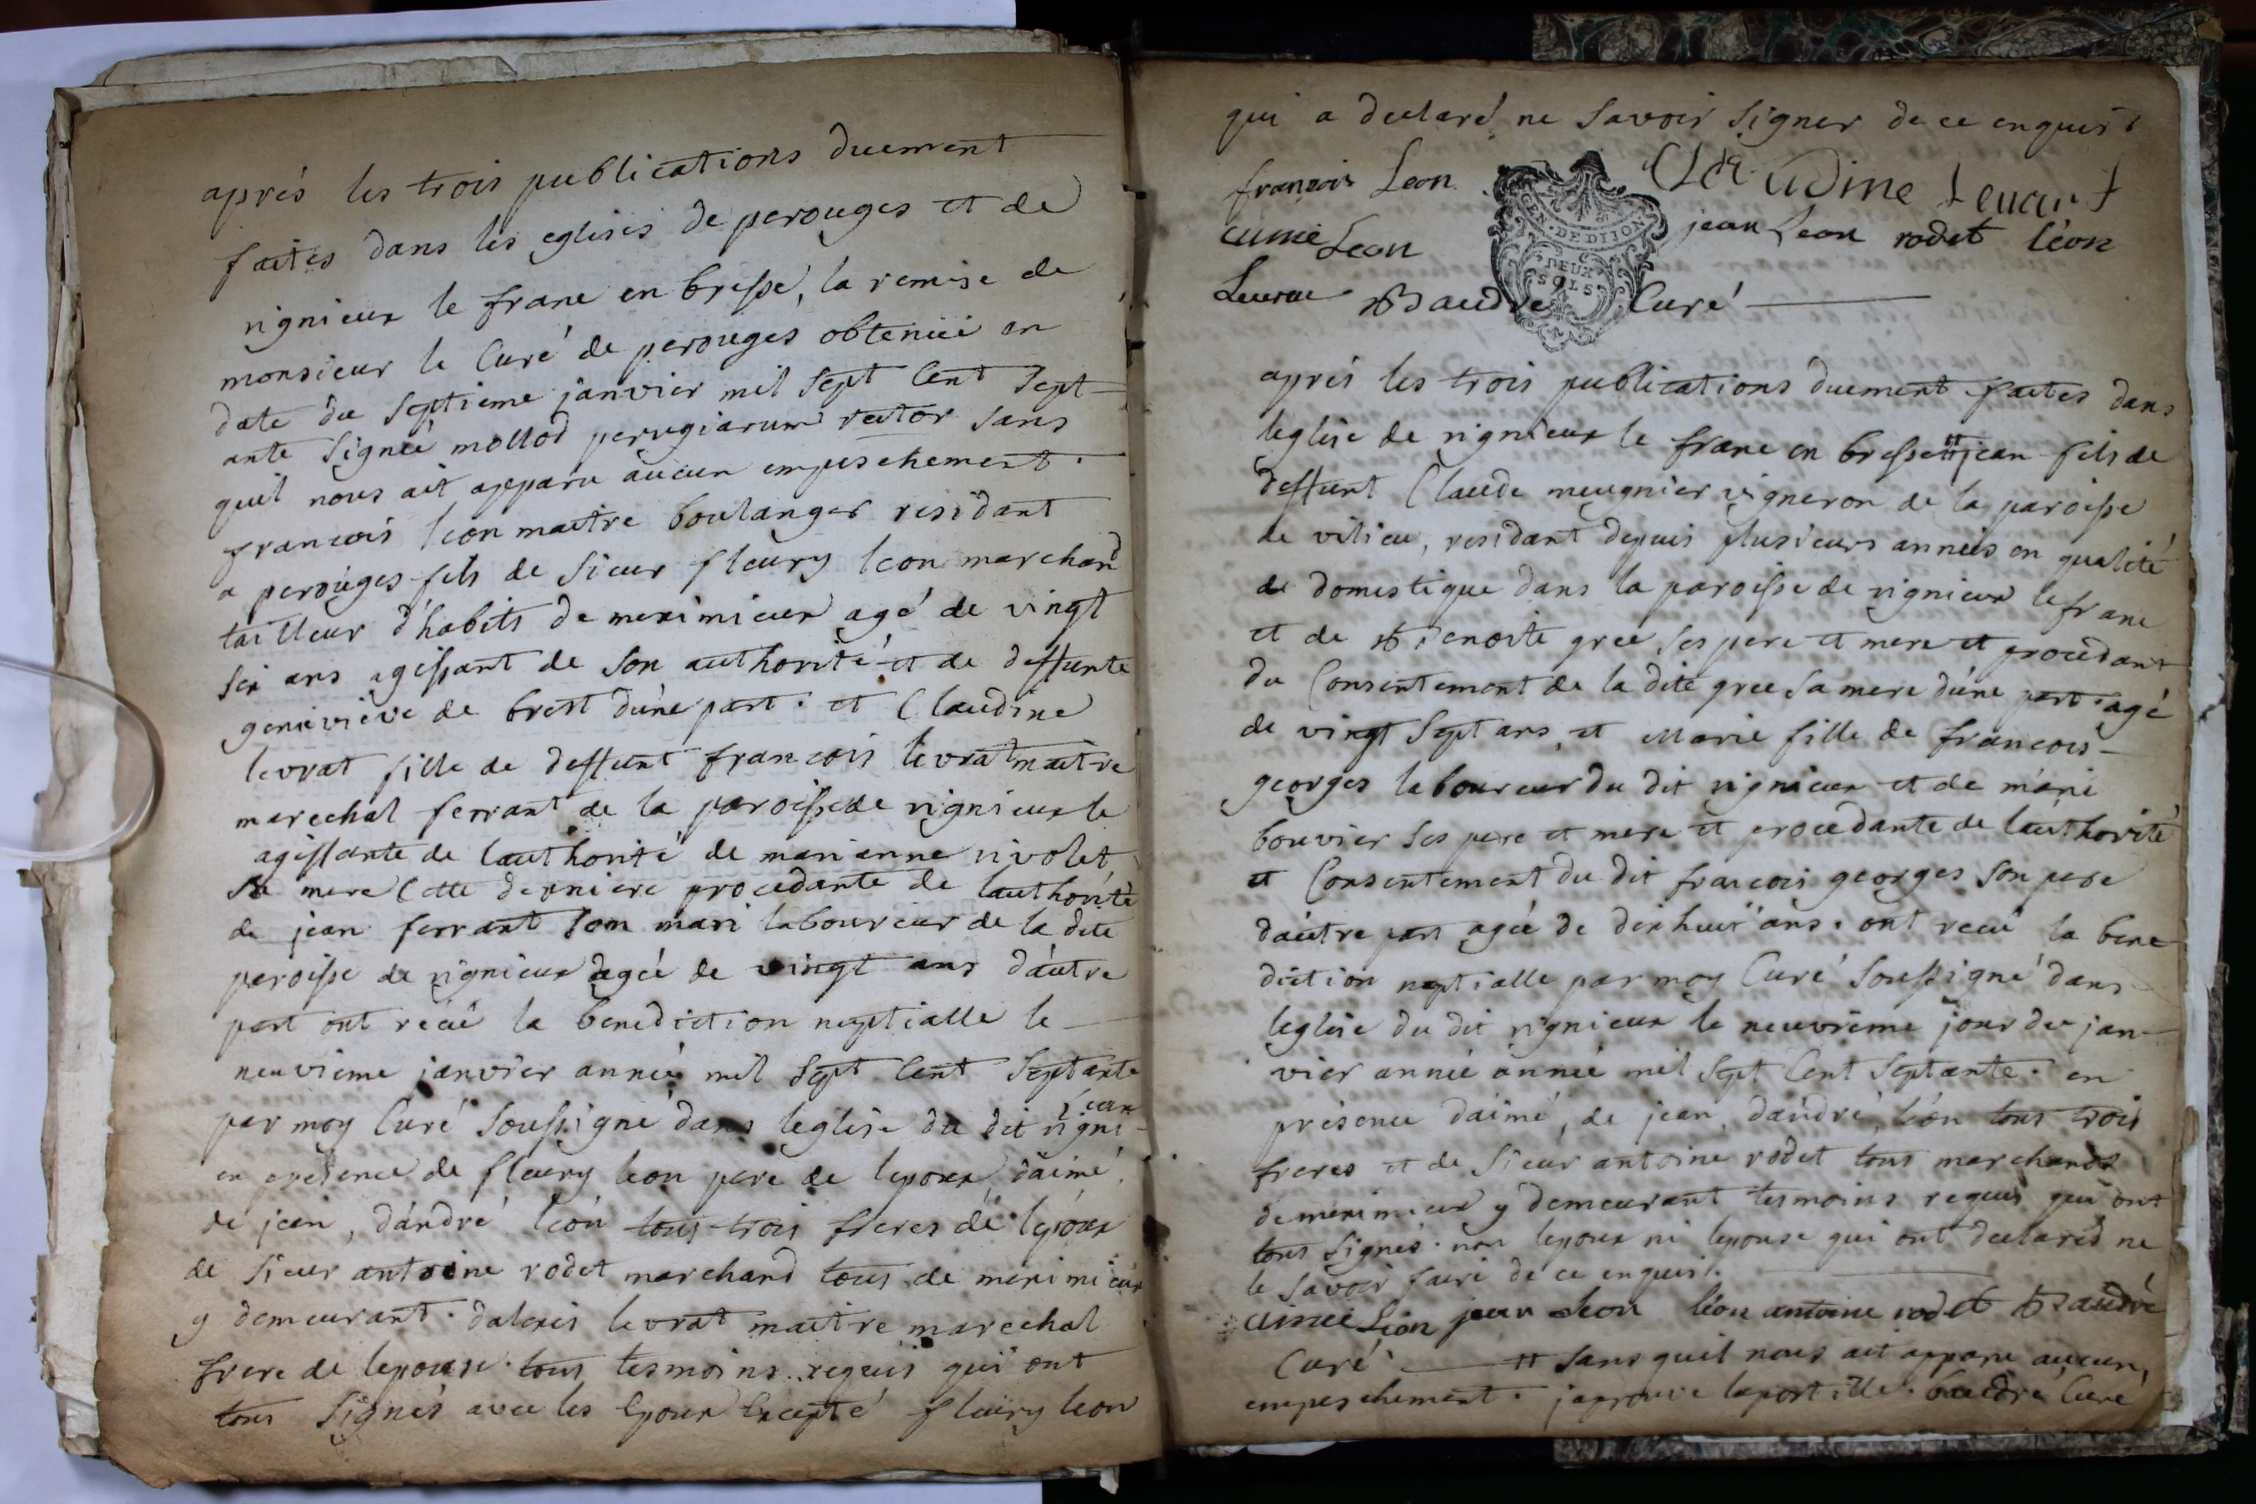 aprés les trois publications duement
faites dans les eglises de perouges et de
rignieux le franc en bresse, la remise de
monsieur le Curé de perouges obtenüe en
date du septieme janvier mil sept Cent Sept-
ante signée mollod perugiarum rector sans
quil nous ait apparu aucun empeschement.
francois leon maitre boulanger residant
a perouges fils de sieur fleury leon marchand
tailleur d'habits de meximieux agé de vingt
six ans agissant de son authorité et de deffunte
genevieve de brest d'une part. et Claudine
levrat fille de deffunt françois levrat maitre
marechal ferrant de la paroisse de rignieux le
agissante de lauthorité de marianne rivolet
sa mere Cette derniere procedante de lauthorité
de jean ferrant son mari laboureur de la dite
paroisse de rignieux agée de vingt ans d'autre
part ont recüe la benediction nuptialle le
neuvieme janvier année mil sept Cent Septante
par moy Curé Soussigné dans leglise du dit rigni-
eux
en presence de fleury leon pere de lepoux, d'aimé,
de jean, d'andré léon tous trois freres de lépoux
de sieur antoine rodet marchand tous de meximieux
y demeurant. dalexis levrat maitre marechal
frere de lepouse. tous tesmoins requis qui ont
tous signés avec les Epoux Excepté fleury leon
qui a declaré ne savoir signer de ce enquis.
francois Leon Claudine Levrat
aimé Leon jean Leon rodet léon
GEN. DE DIJON
DEUX SOLS
Levrat Baudre Curé
aprés les trois publications duement faites dans
leglise de rignieux le franc en bresse # jean fils de
deffunt Claude meugnier vigneron de la paroisse
de vilieu, residant depuis plusieurs années en qualité
de domestique dans la paroisse de rignieux le franc
et de Benoite gree ses pere et mere et procedant
du Consentement de la dite gree sa mere d'une part agé
de vingt sept ans, et Marie fille de francois
georges laboureur du dit rignieux et de marie
bouvier ses pere et mere et procedante de lauthorité
et Consentement du dit francois georges son pere
d'autre part agée de dixhuit ans. ont recüe la bene
diction nuptialle par moy Curé Soussigné dans
leglise du dit rignieux le neuvieme jour de jan-
vier année année mil sept Cent septante. en
présence d'aimé, de jean, d'andré, léon tous trois
freres et de sieur antoine rodet tous marchands
de meximieux y demeurant tesmoins requis qui ont
tous signés. non lepoux ni lepouse qui ont declarés ne
le savoir faire de ce enquis.
aimé Léon jean Leon léon antoine rodet Baudre
Curé # sans quil nous ait apparu aucun,
empeschement. japrouve lapostille. baudre Curé